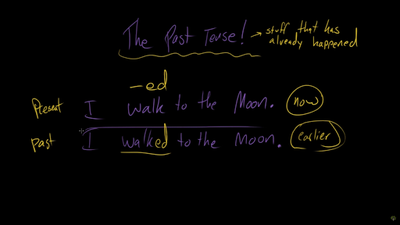 The Past Tense! → stuff that has
already happened
-ed
Present I walk to the Moon. now
Past I walked to the Moon. earlier